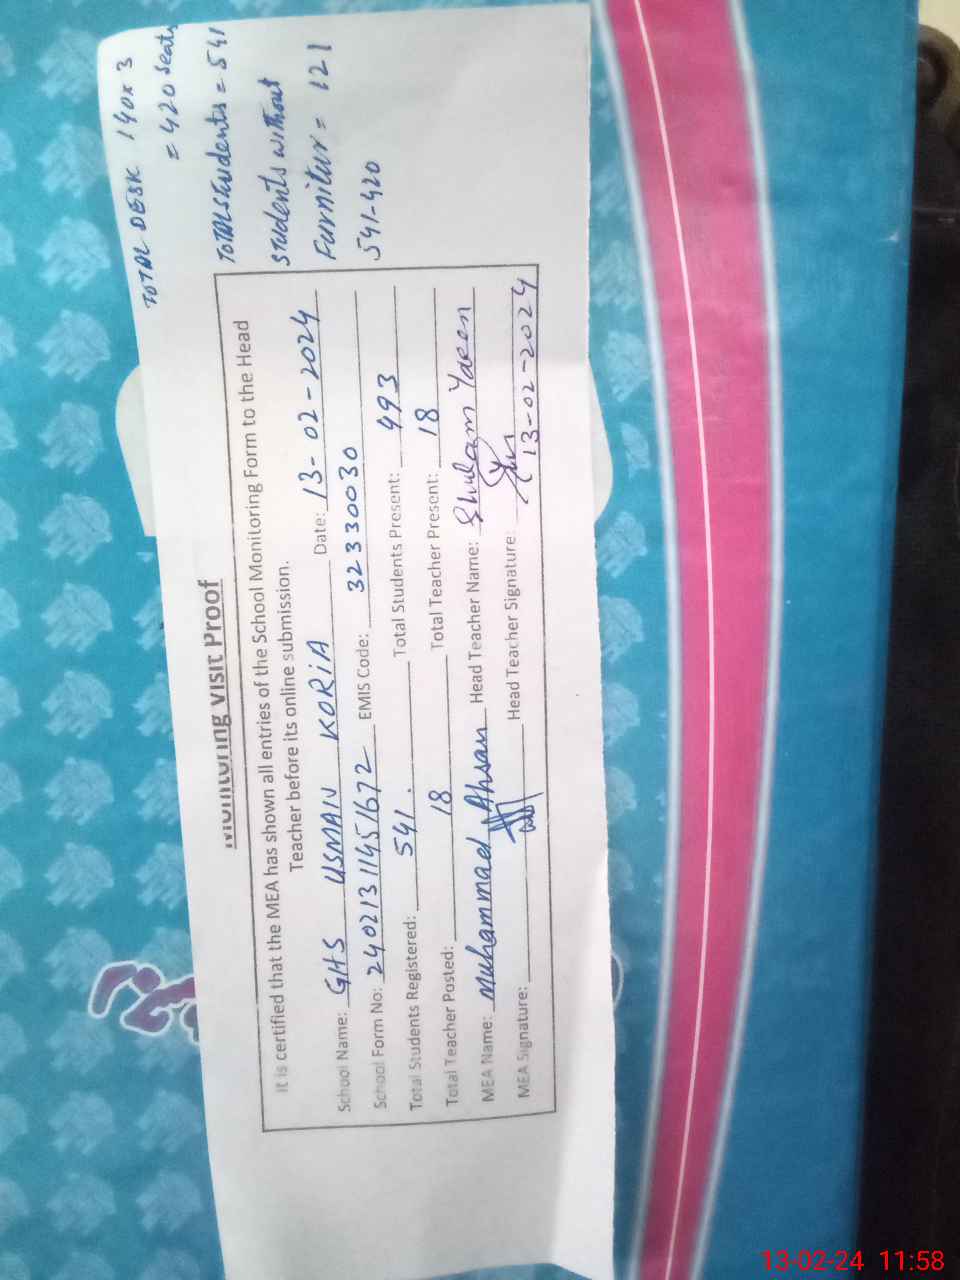 TOTAL DESK 140x3
= 420 seats
TOTAL students = 541
students without
Furnitur = 121
541-420
Monitoring Visit Proof
It is certified that the MEA has shown all entries of the School Monitoring Form to the Head
Teacher before its online submission.
School Name: GHS USMAN KORiA Date: 13-02-2024
School Form No: 24021311451672 EMIS Code: 32330030
Total Students Registered: 541. Total Students Present: 493
Total Teacher Posted: 18 Total Teacher Present: 18
MEA Name: Muhammad Ahsan Head Teacher Name: Ghulam Yaseen
MEA Signature: Head Teacher Signature:
13-02-2024
13-02-24 11:58